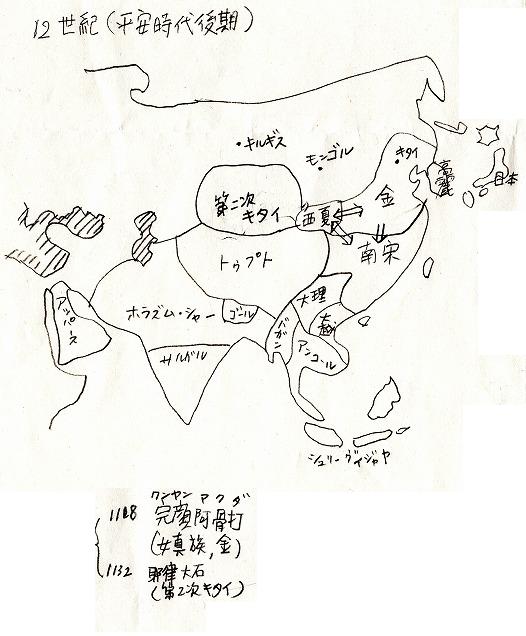 12世紀(平安時代後期)
キルギス
モンゴル
キタイ
金
高麗
日本
第二次
キタイ
西夏
南宋
トゥプト
大理
ホラズム・シャー
ゴール
パガン
アンコール
アッバース
サルガル
シュリーヴィジャヤ
ワンヤン アクダ
完顔阿骨打
(女真族,金)
1132 耶律大石
(第2次キタイ)